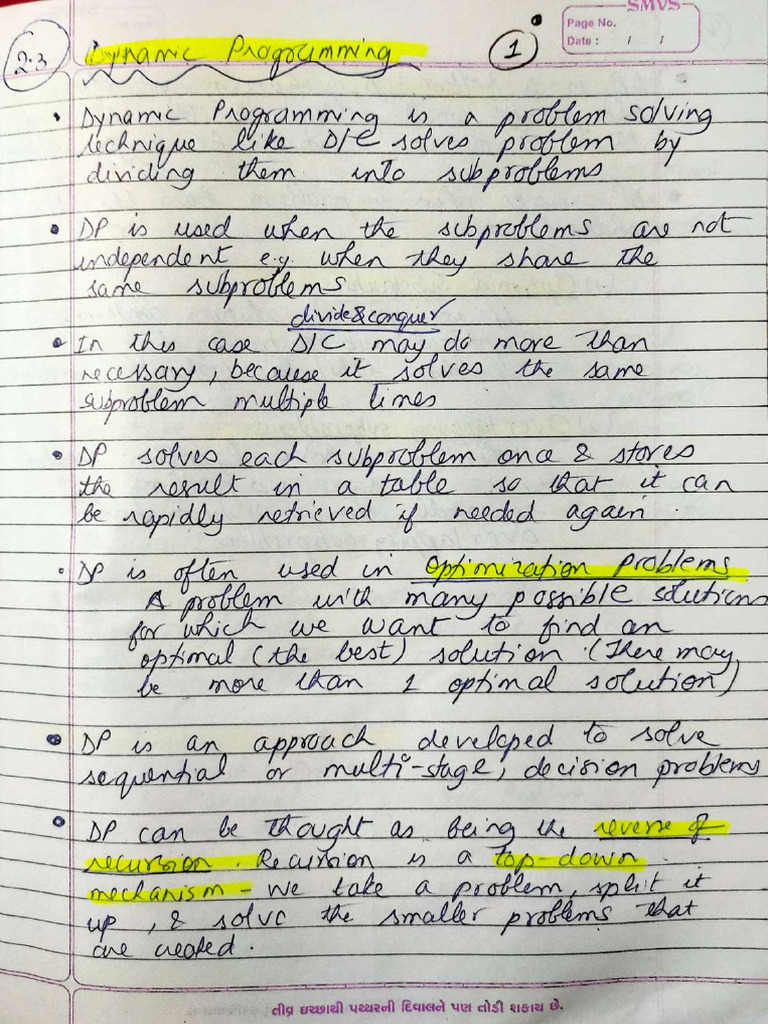 SMVS
Page No.
Date : / /
2.3 Dynamic Programming 1
• Dynamic Programming is a problem solving
technique like D/C solves problem by
dividing them into subproblems
• DP is used when the subproblems are not
independent e.g. when they share the
same subproblems
divide & conquer
• In this case D/C may do more than
necessary, because it solves the same
subproblem multiple times
• DP solves each subproblem once & stores
the result in a table so that it can
be rapidly retrieved if needed again.
• DP is often used in optimization problems
A problem with many possible solutions
for which we want to find an
optimal (the best) solution. (There may
be more than 1 optimal solution)
• DP is an approach developed to solve
sequential or multi-stage, decision problems
• DP can be thought as being the reverse of
recursion. Recursion is a top-down
mechanism - we take a problem, split it
up, & solve the smaller problems that
are created.
તીવ્ર ઇચ્છાથી પથ્થરની દિવાલને પણ તોડી શકાય છે.